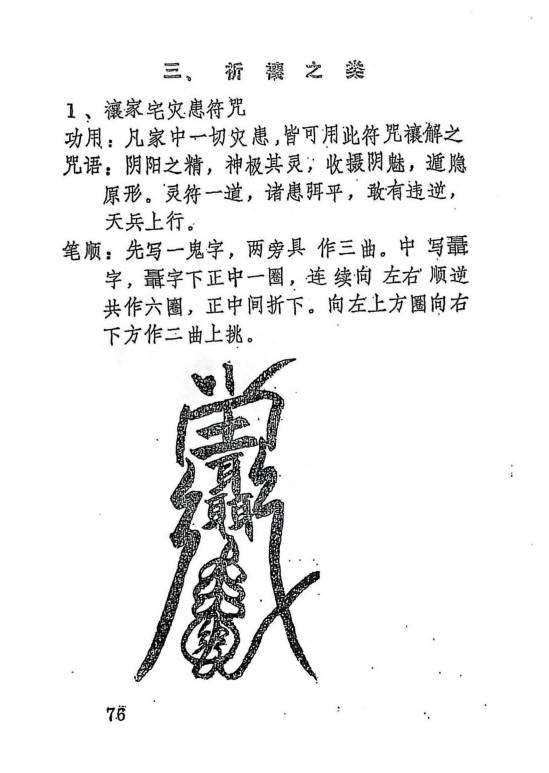 三、祈禳之类
1、禳家宅灾患符咒
功用：凡家中一切灾患，皆可用此符咒禳解之
咒语：阴阳之精，神极其灵，收摄阴魅，遁隐
原形。灵符一道，诸患弭平，敢有违逆，
天兵上行。
笔顺：先写一鬼字，两旁具 作三曲。中 写聶
字，聶字下正中一圈，连 续向 左右 顺逆
共作六圈，正中间折下。向左上方圈向右
下方作二曲上挑。
76